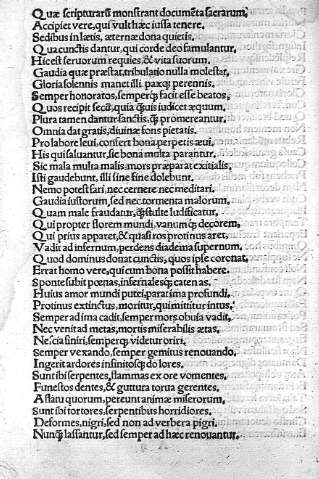 Quæ scripturarũ monstrant documẽta sacrarum,
Accipiet vere, qui vult hæc iussa tenere,
Sedibus in lætis, æternæ dona quietis.
Quæ cunctis dantur, qui corde deo famulantur,
Hic est seruorum requies, & vita suorum.
Gaudia quæ præstat, tribulatio nulla molestat,
Gloria solennis manet illi pax⁊ perennis.
Semper honoratos, semper⁊ facit esse beatos,
Quos recipit secũ, quia quisuis iudicet æquum,
Plura tamen dantur sanctis, ꝙ promereantur,
Omnia dat gratis, diuinæ fons pietatis.
Pro labore leui, confert bona perpetis æui,
His qui saluantur, sic bona multa parantur,
Sic mala multa malis mors præparat exitialis,
Isti gaudebunt, illi sine fine dolebunt.
Nemo potest fari, nec cernere, nec meditari,
Gaudia iustorum, sed nec tormenta malorum,
Quam male fraudatur, ꝙ stulte ludificatur,
Qui propter florem mundi, vanum⁊ decorem,
Qui prius apparet, & quasi ros protinus aret,
Vadit ad infernum, perdens diadema supernum,
Quod dominus donat cunctis, quos ipse coronat,
Errat homo vere, qui cum bona possit habere,
Sponte subit poenas, infernales⁊ catenas.
Huius amor mundi putei parasima profundi,
Protinus extinctus, moritur, qui mittitur intus,
Semper ad ima cadit, semper mors obuia vadit,
Nec venit ad metas, mortis miserabilis ætas,
Nescia finiri, semper⁊ videtur oriri.
Semper vexando, semper gemitus renouando,
Ingerit ardores infinitos⁊ dolores,
Sunt ibi serpentes, flammas ex ore vomentes,
Funestos dentes, & guttura torua gerentes,
Afflatu quorum, pereunt animæ miserorum,
Sunt ibi tortores, serpentibus horridiores,
Deformes, nigri, sed non ad verbera pigri,
Nunꝙ lassantur, sed semper ad hæc renouantur,